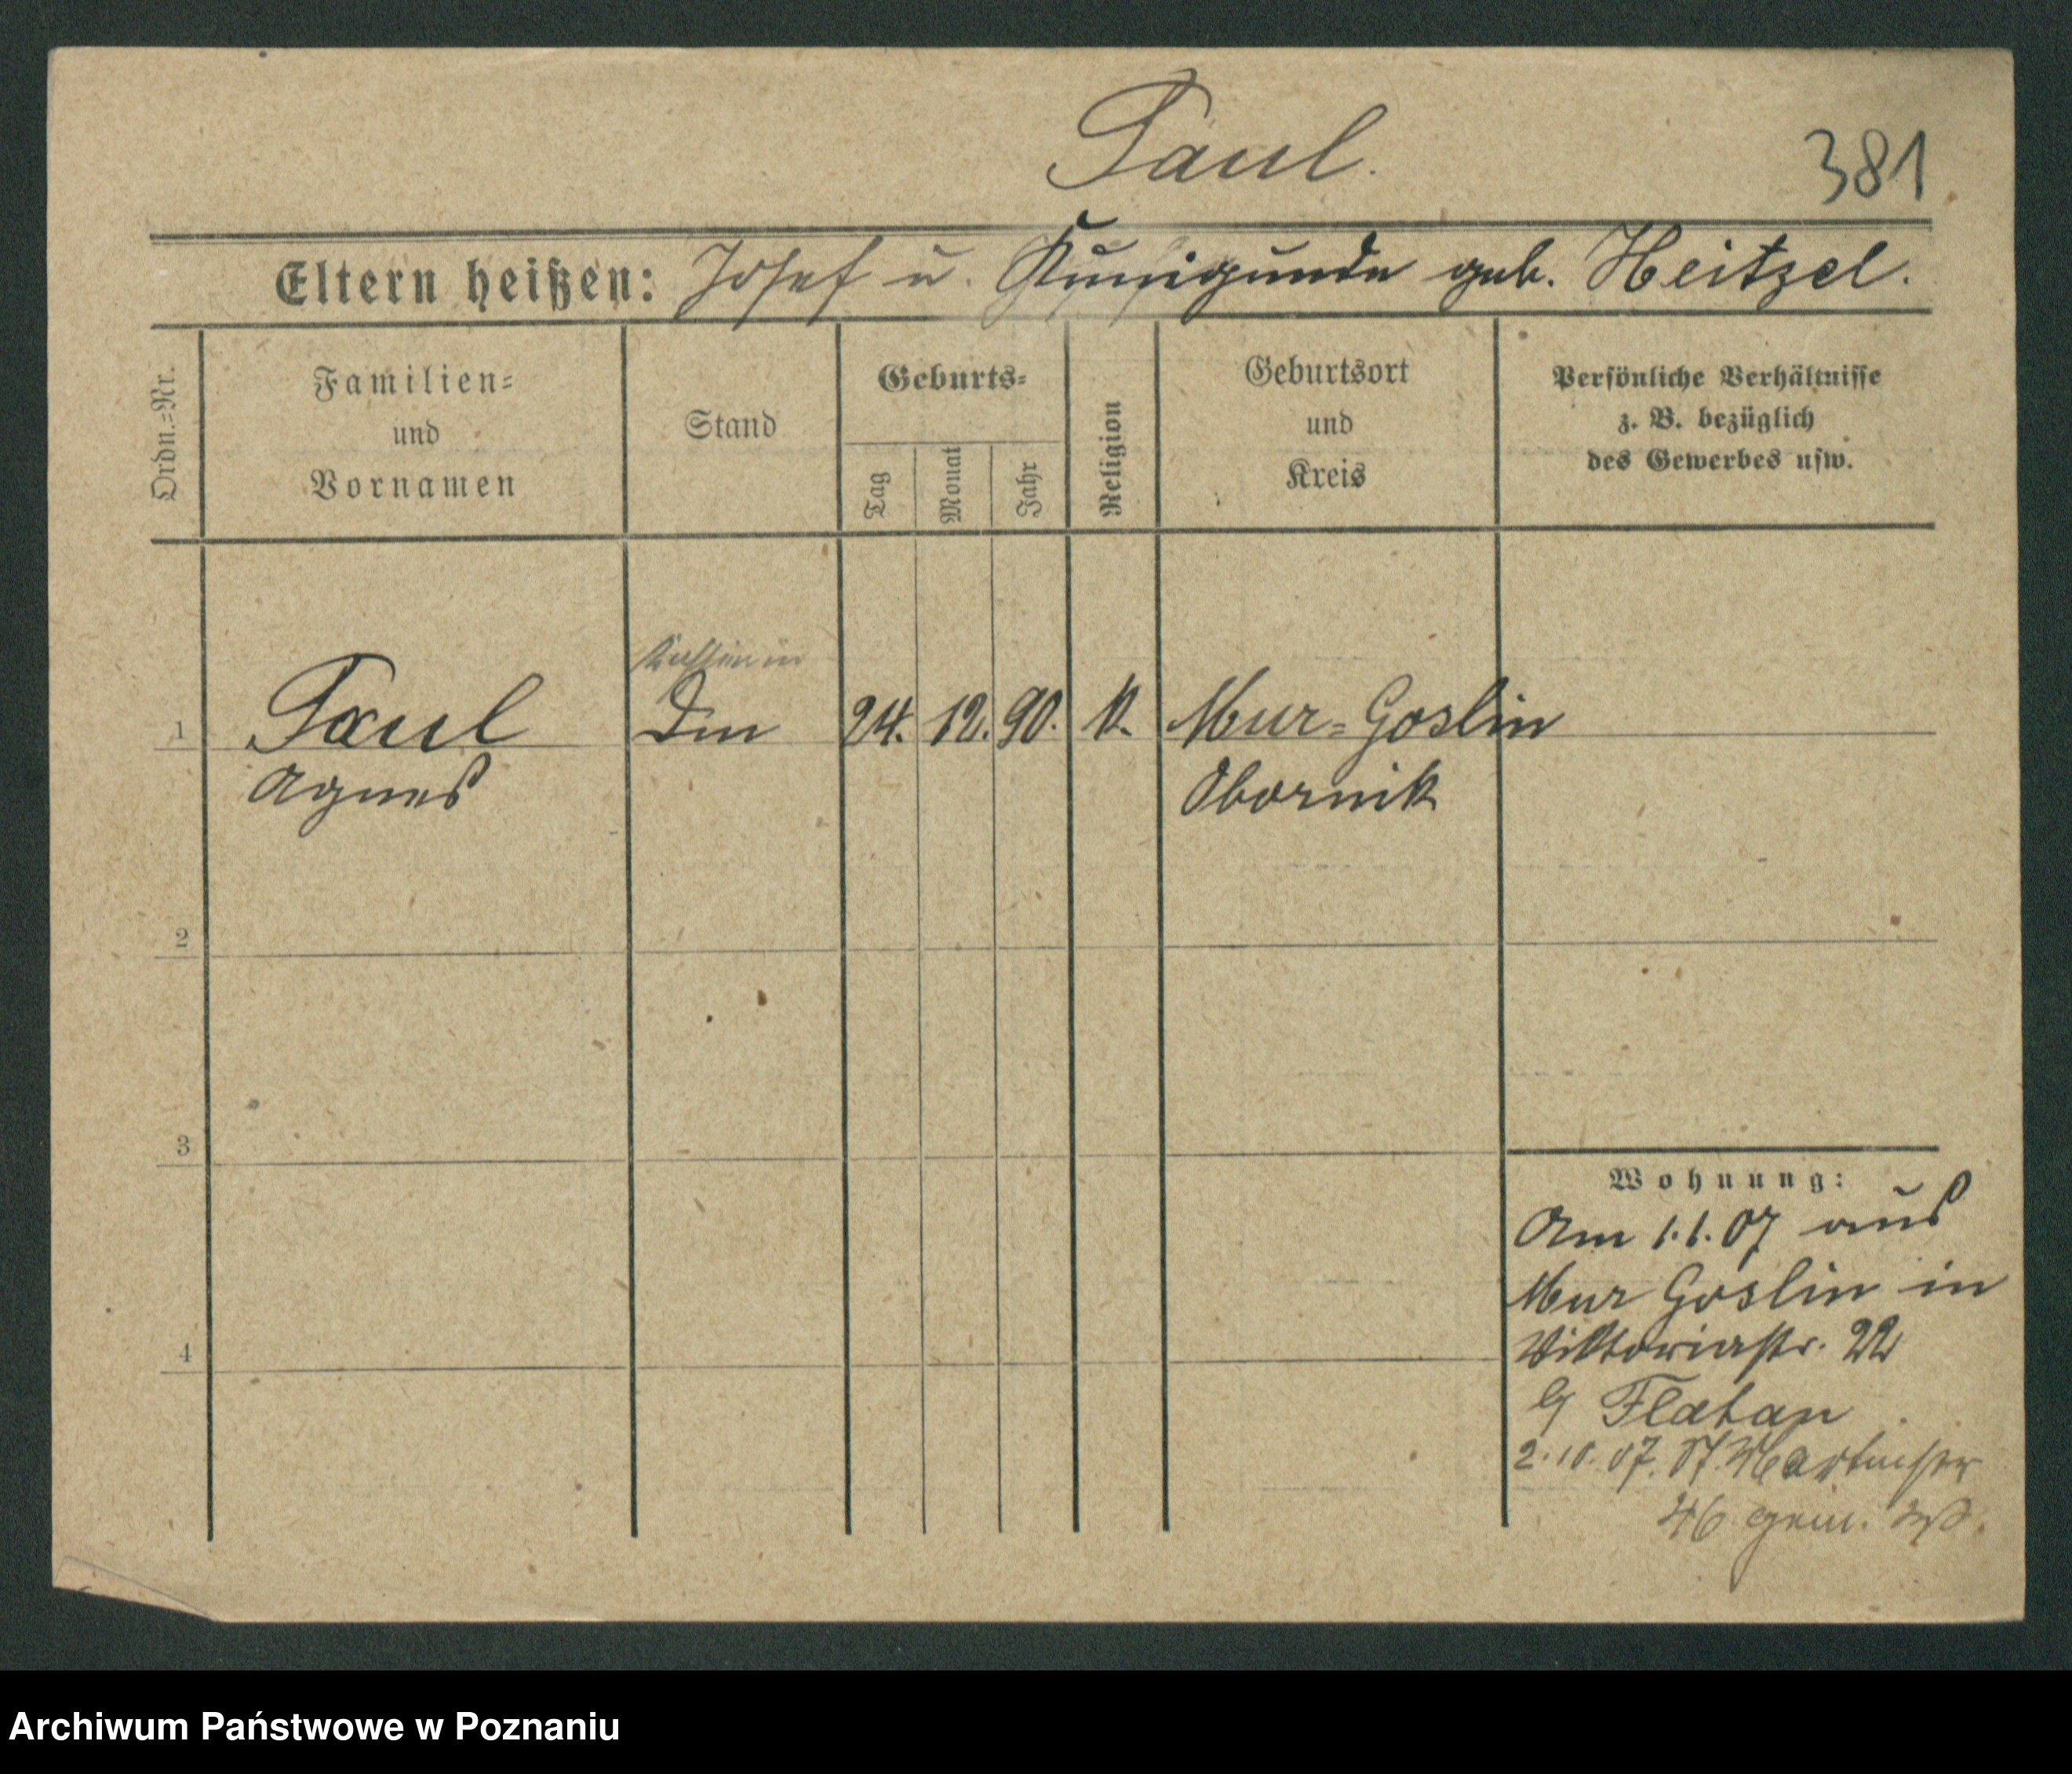 Paul.
381
Eltern heißen: Josef u. Kunigunde geb. Heitzel.
Ordn.=Nr.
Familien=
und
Vornamen
Stand
Geburts=
Tag
Monat
Jahr
Religion
Geburtsort
und
Kreis
Persönliche Verhältnisse
z. B. bezüglich
des Gewerbes usw.
1 Paul 24. 12. 90. k. Mur=Goslin
Agnes Obornik
2
3
4
Wohnung:
Am 1.1.07 aus
Mur Goslin in
Viktoriastr. 22
Flatau
2.10.07. St. Martinstr
46
Archiwum Państwowe w Poznaniu